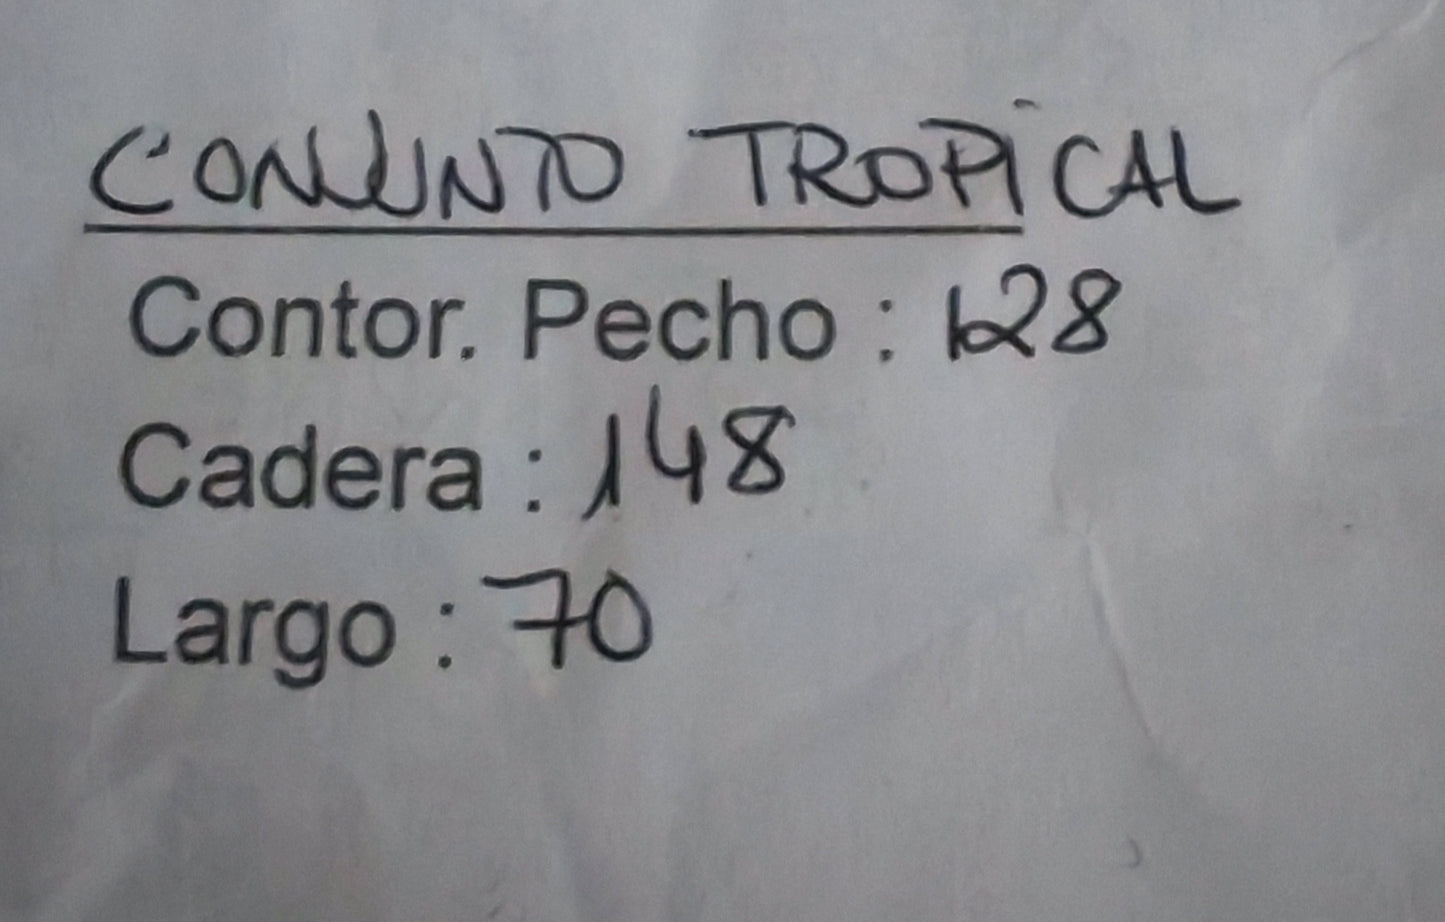 CONJUNTO TROPICAL
Contor. Pecho : 128
Cadera : 148
Largo : 70